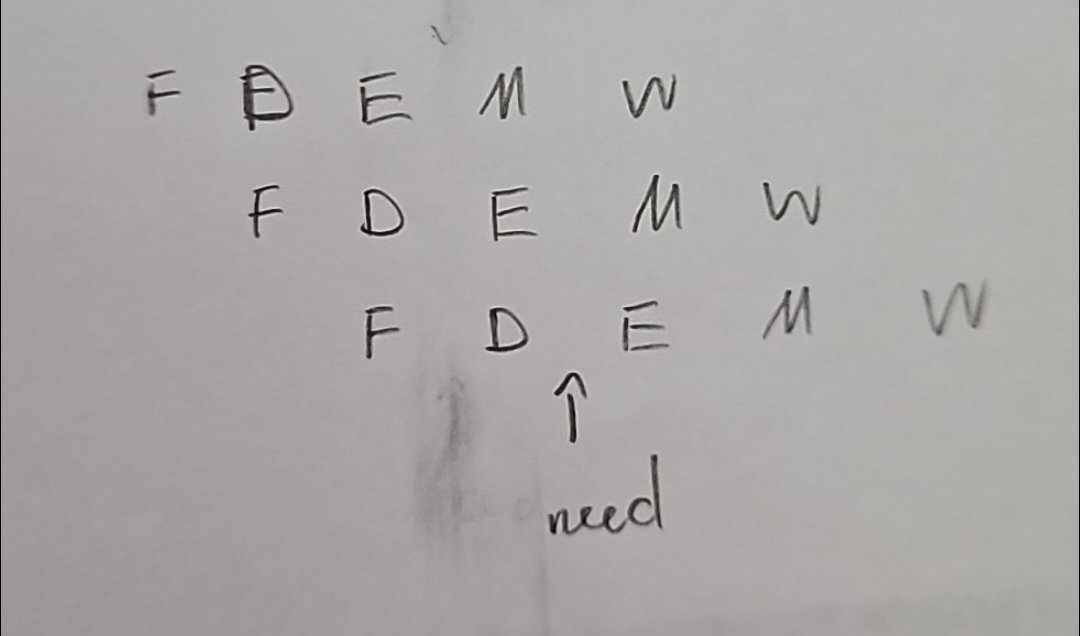 F D E M W
F D E M W
F D E M W
↑
need